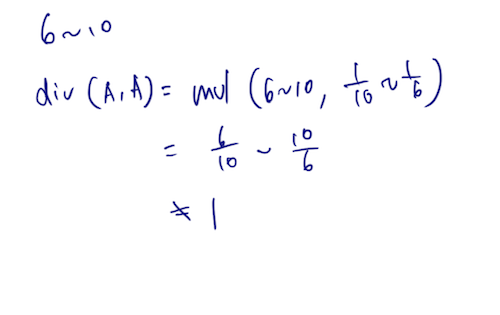 6 ~ 10
div (A, A) = mul (6 ~ 10, 1/10 ~ 1/6)
= 6/10 ~ 10/6
≠ 1